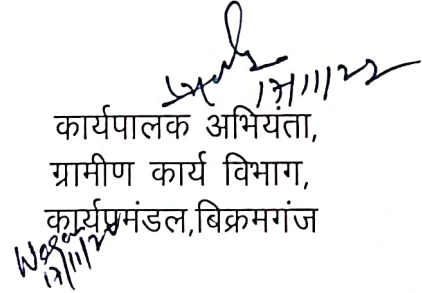 17/11/22
कार्यपालक अभियंता,
ग्रामीण कार्य विभाग,
कार्यप्रमंडल,बिक्रमगंज
17/11/22